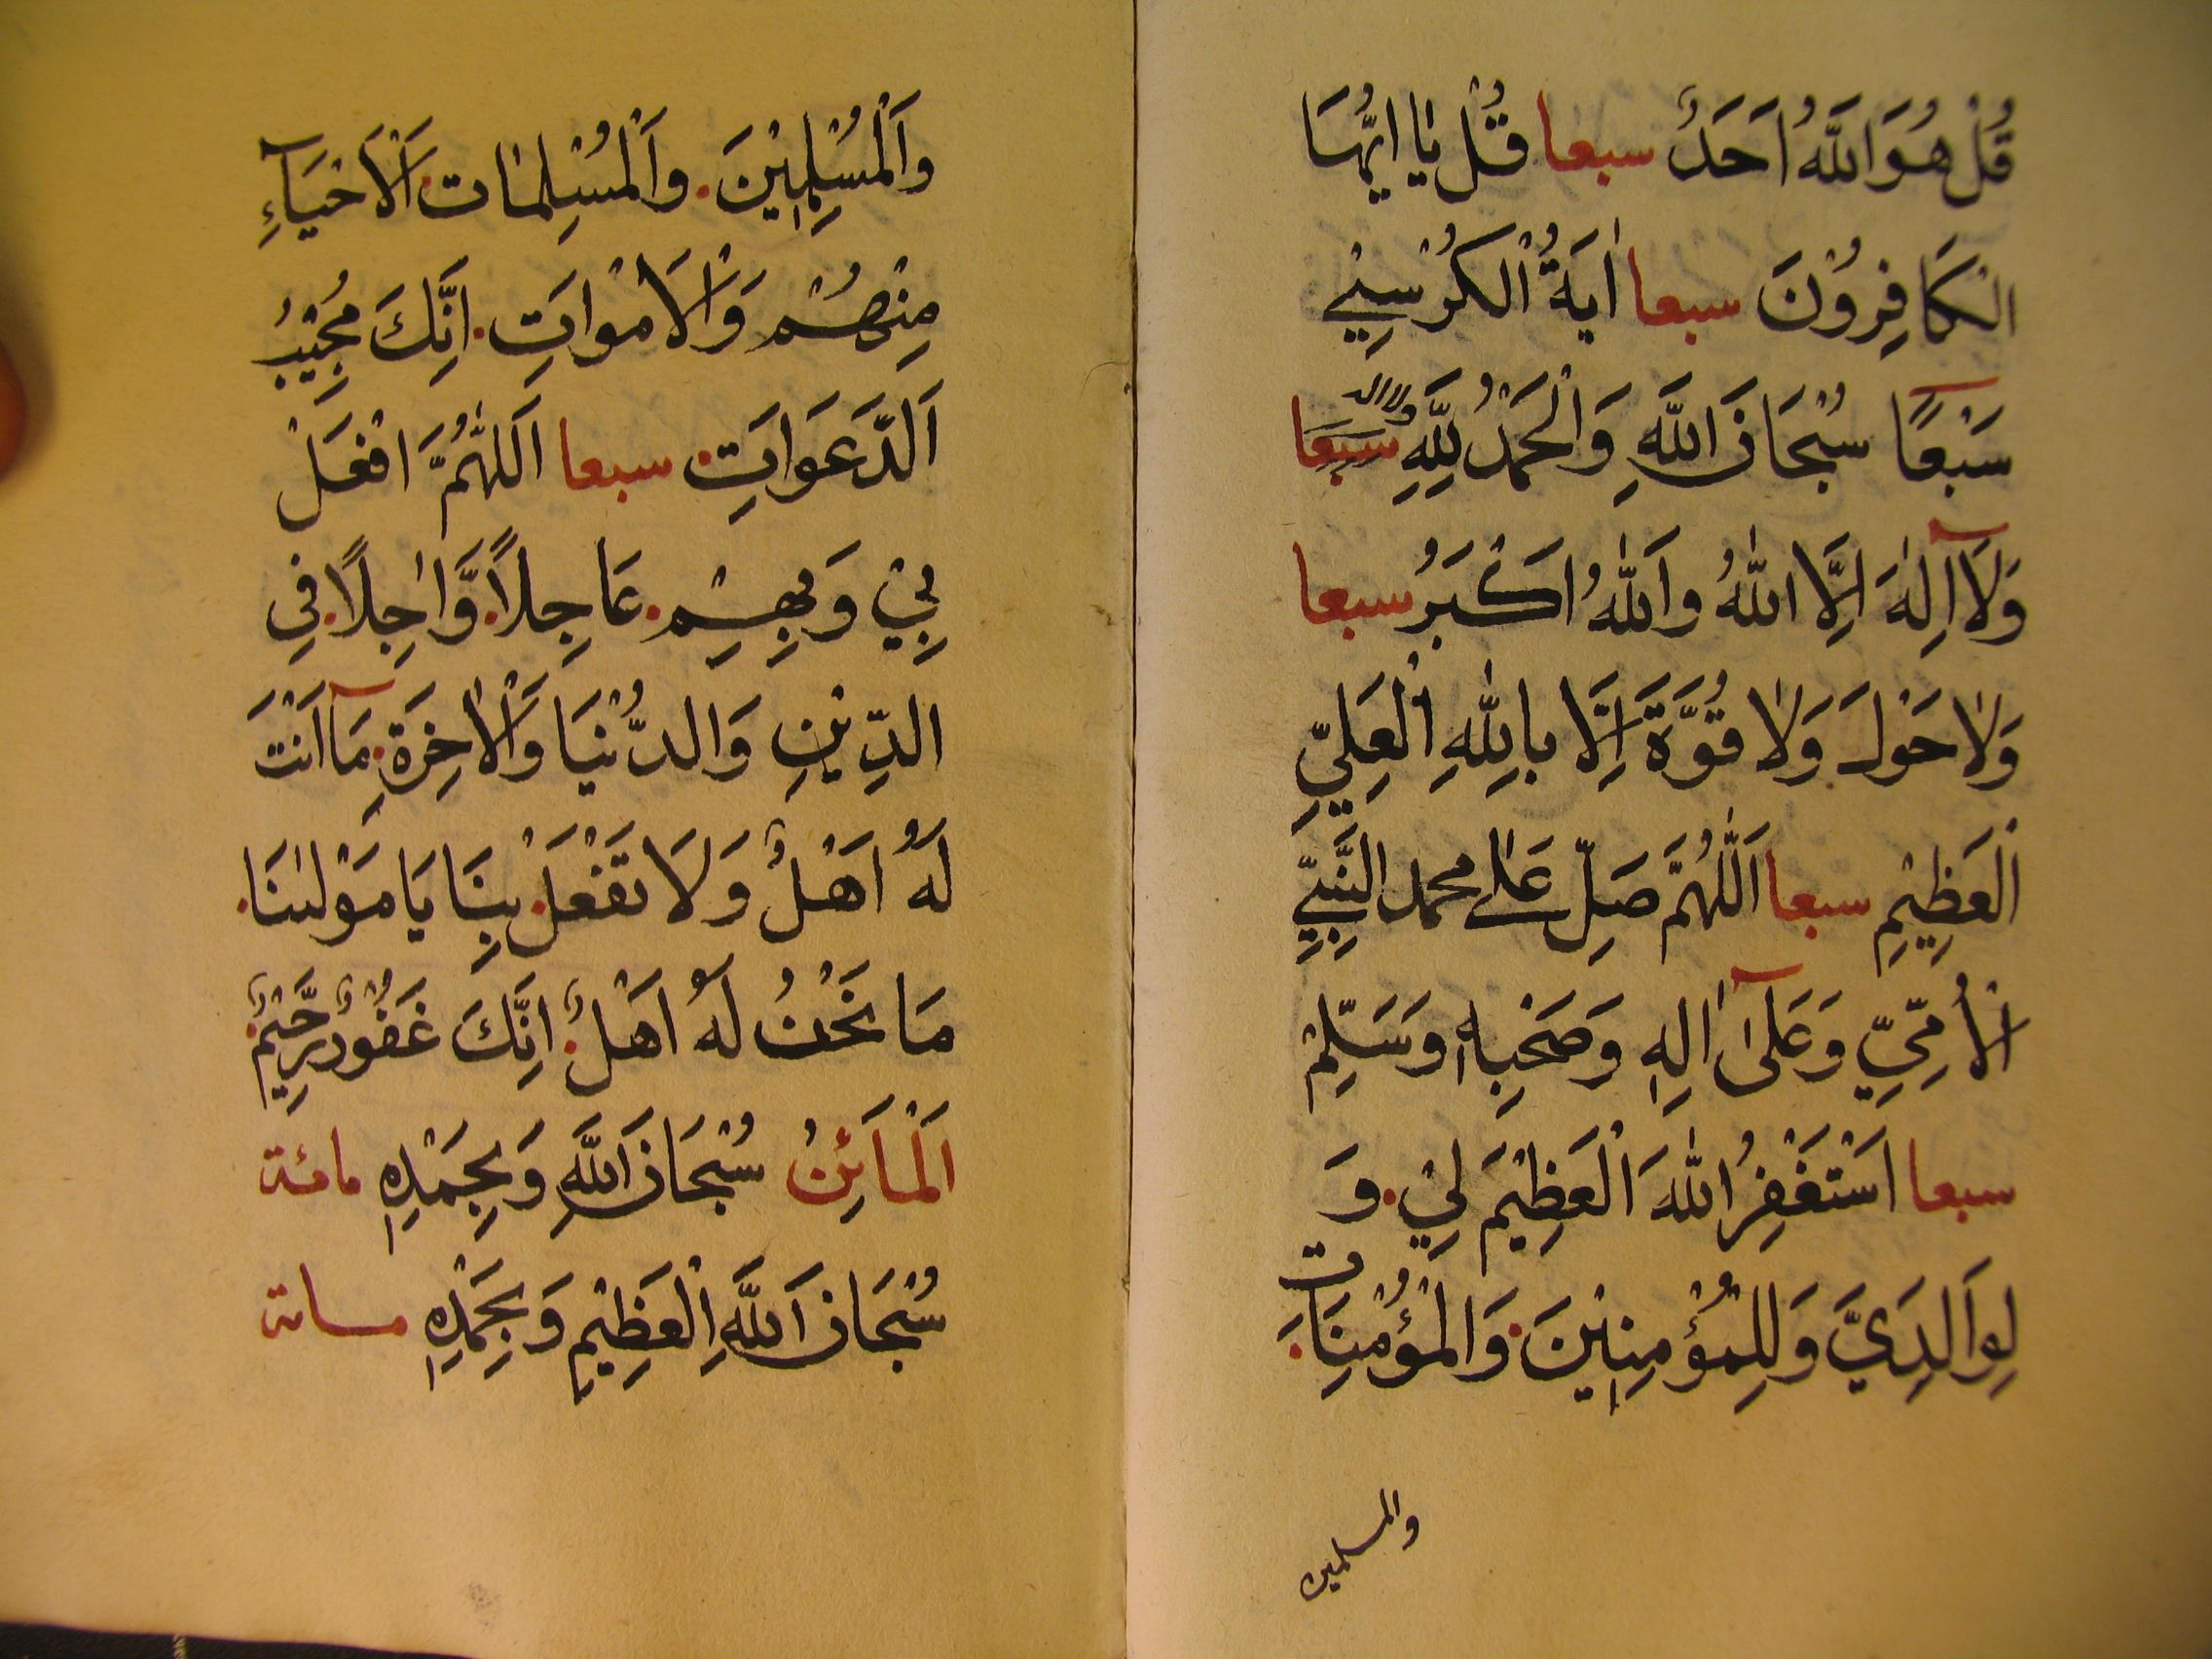 قُلْ هُوَ اللَّهُ اَحَدٌ سبعا قُلْ يَا اَيُّهَا
الْكَافِرُوْنَ سبعا اٰيَةُ الْكُرْسِيْ
سَبْعًا سُبْحَانَ اللَّهِ وَالْحَمْدُ لِلَّهِ سبعا
وَلَآ اِلٰهَ اِلَّا اللّٰهُ وَاَللّٰهُ اَكْبَرُ سبعا
وَلَا حَوْلَ وَلَا قُوَّةَ اِلَّا بِاللّٰهِ الْعَلِيِّ
الْعَظِيْمِ سبعا اَللّٰهُمَّ صَلِّ عَلٰى محمد النَّبِيِّ
الْاُمِّيِّ وَعَلٰٓى اٰلِهٖ وَصَحْبِهٖ وَسَلِّمْ
سبعا اَسْتَغْفِرُ اللّٰهَ الْعَظِيْمَ لِيْ. وَ
لِوَالِدَيَّ وَلِلْمُؤْمِنِيْنَ. وَالْمُؤْمِنَات.
والمسلمين
وَاَلْمُسْلِمِيْنَ. وَاَلْمُسْلِمَات. اَلْاَحْيَآءِ
مِنْهُمْ وَالْاَمْوَاتِ. اِنَّكَ مُجِيْبُ
اَلدَّعَوَاتِ. سبعا اَللّٰهُمَّ افْعَلْ
بِيْ وَبِهِمْ. عَاجِلاً. وَّاٰجِلًا. فِي
الدِّيْنِ وَالدُّنْيَا وَالْاٰخِرَةِ. مَآ اَنْتَ
لَهُ اَهْلٌ وَلَا تَفْعَلْ. بِنَا يَا مَوْلٰىنَا.
مَا نَحْنُ لَهُ اَهْلٌ. اِنَّكَ غَفُوْرٌ رَّحِيْمٌ.
اَلْمَائِنُ سُبْحَانَ اللَّهِ وَبِحَمْدِهٖ مائة
سُبْحَانَ اَللَّهِ الْعَظِيْمِ وَبِحَمْدِهٖ مائة